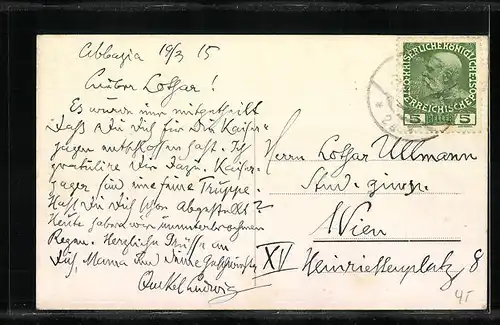 Abbazia 19/3 15
Lieber Lothar!
Es wurde mir mitgetheilt
daß Du Dich für die Kaiser-
jäger entschlossen hast. Ich
gratuliere Dir dazu. Kaiser-
jäger sind eine feine Truppe.
Hast Du Dich schon abgestellt?
Heute haben wir ununterbrochnen
Regen. Herzliche Grüße an
Dich, Mama und Deine Geschwister
Onkel Ludwig
KAISERLICHE KÖNIGLICHE
ÖSTERREICHISCHE
5 5
Herrn Lothar Ullmann
Stud.
Wien
XV Heinrichsenplatz 8